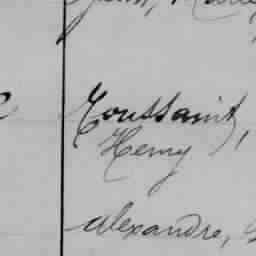 Toussaint,
Henry
Alexandre,